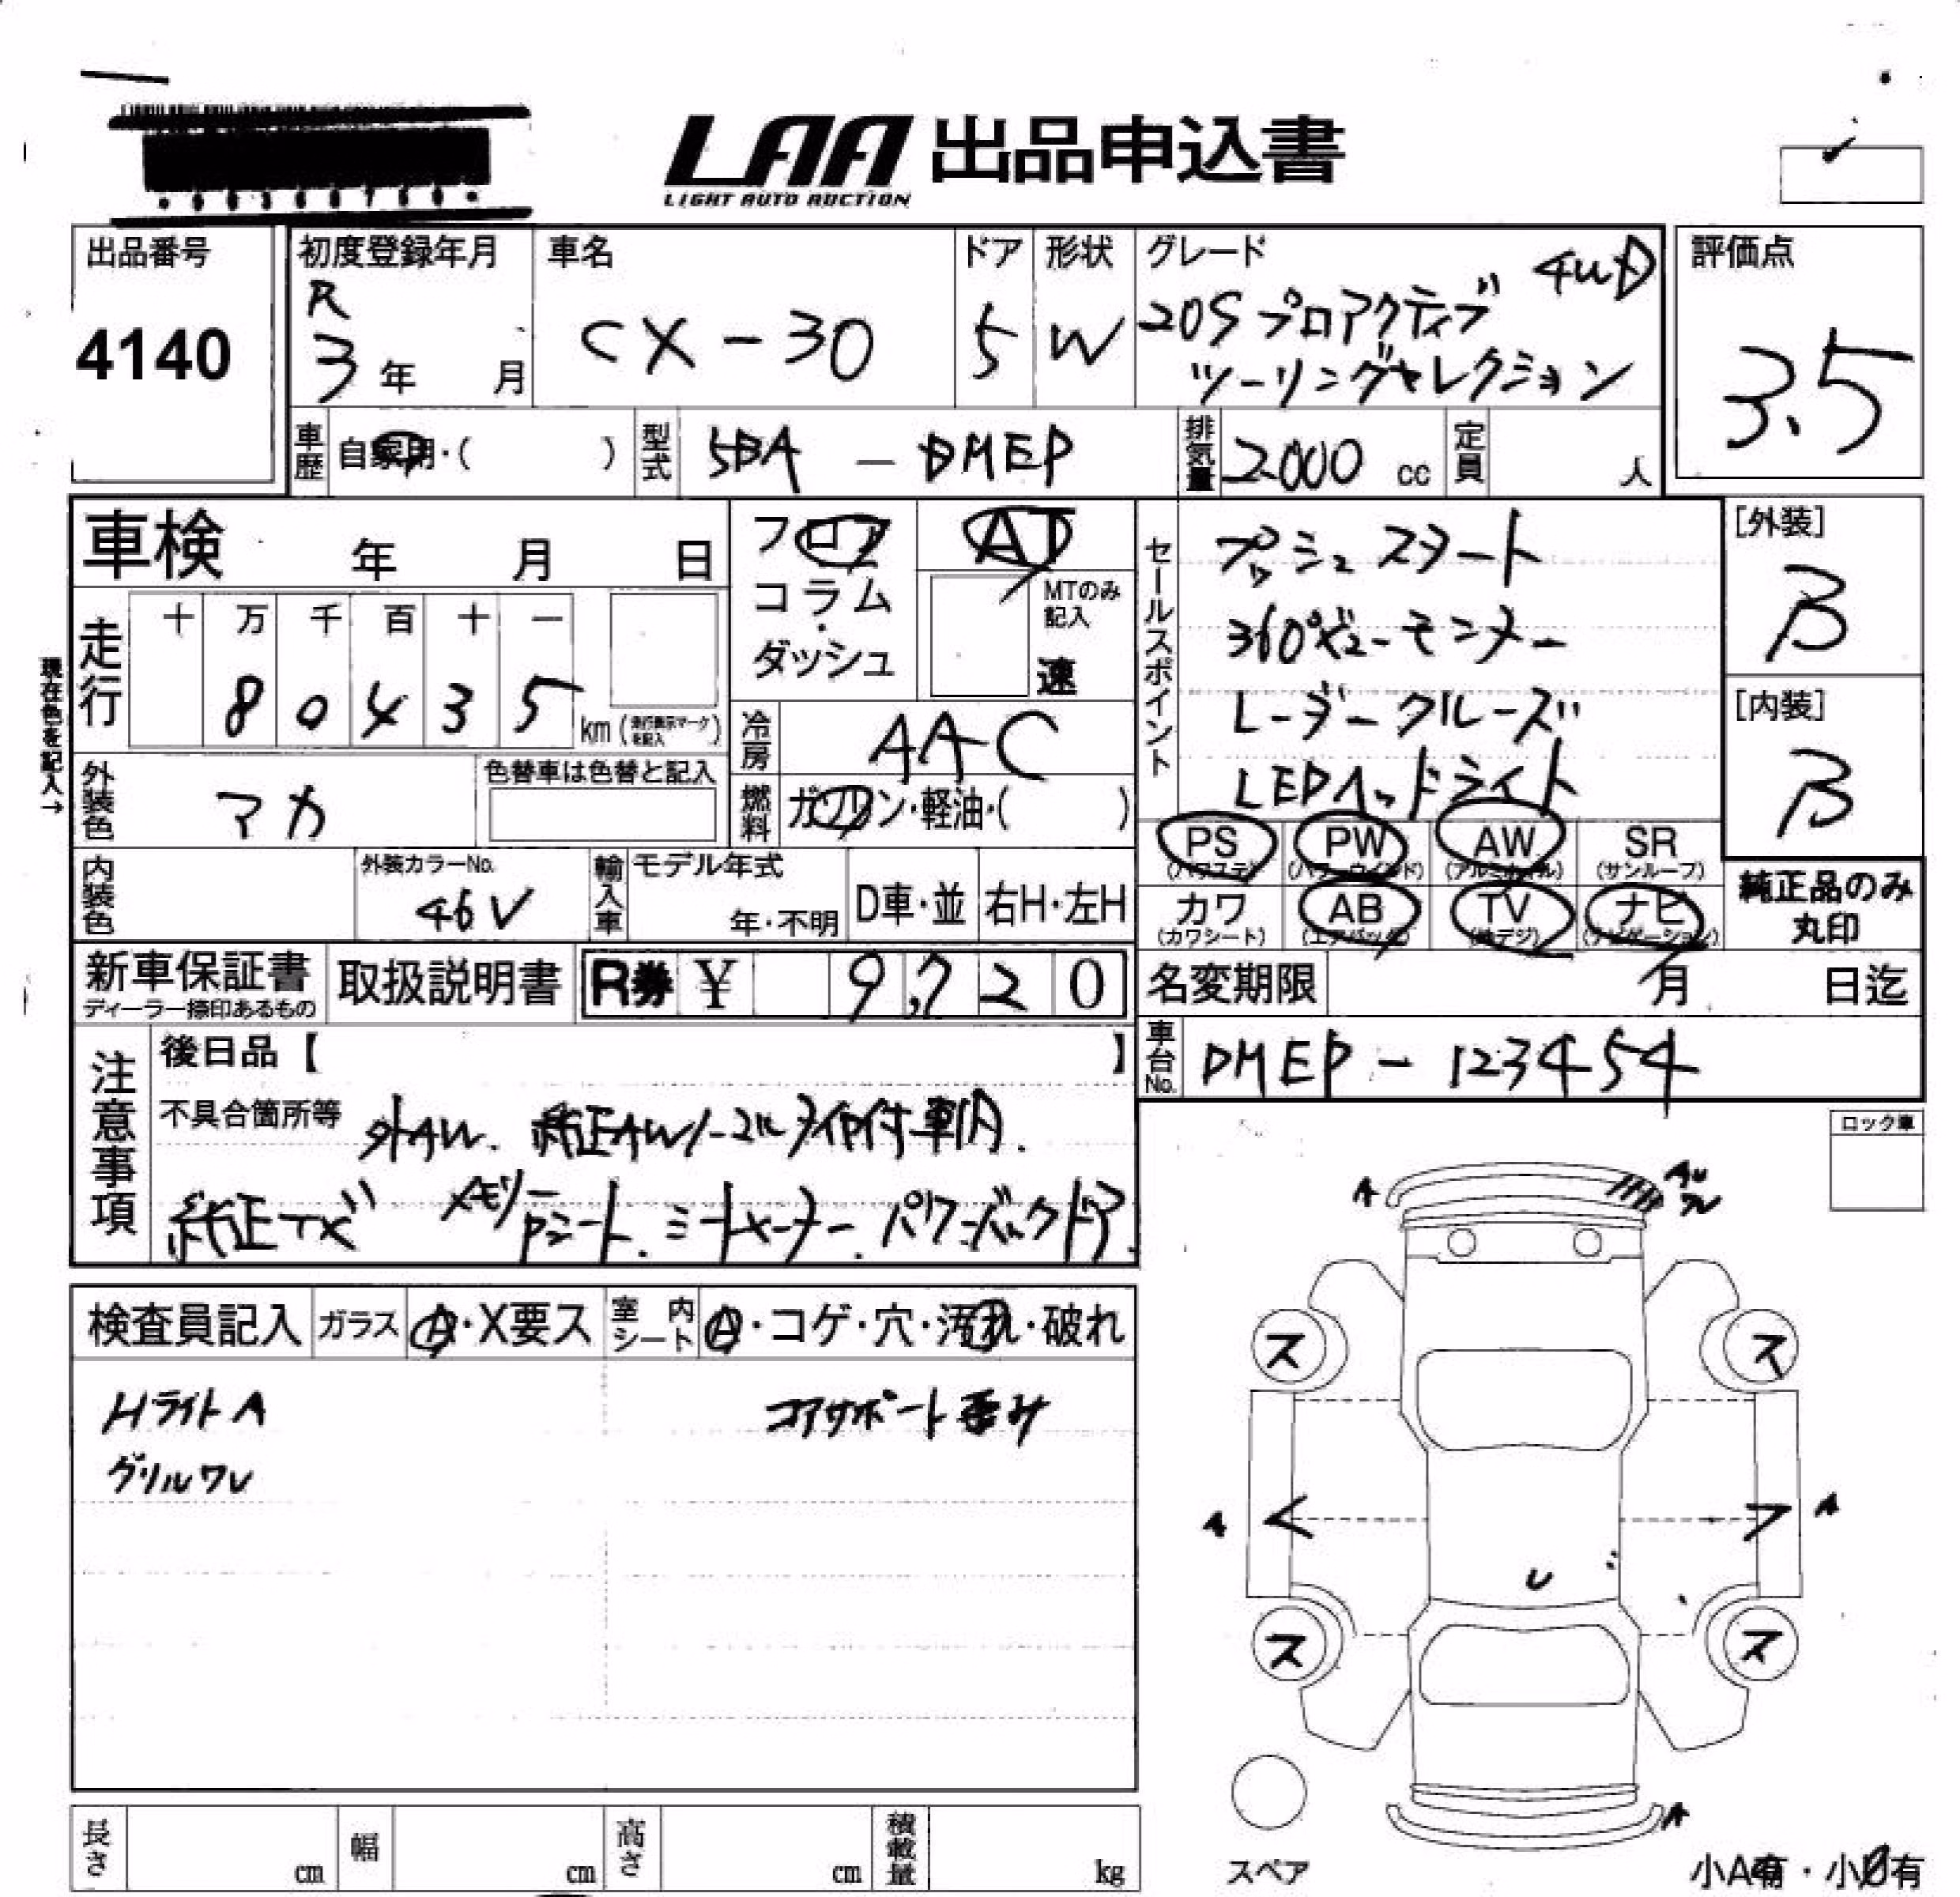 LAA 出品申込書
LIGHT AUTO AUCTION
出品番号
4140
初度登録年月
R
3年 月
車名
CX-30
ドア
5
形状
W
グレード
4WD
20Sプロアクティブ
ツーリングセレクション
評価点
3.5
車歴
自家用・( )
型式
5BA - DMEP
排気量
2000 cc
定員
人
車検 年 月 日
フロア
コラム
・
ダッシュ
AT
MTのみ
記入
速
セールスポイント
プッシュスタート
360°ビューモニター
レーダークルーズ
LEDヘッドライト
[外装]
B
[内装]
B
現在色を記入→
走行
十 万 千 百 十 一
8 0 4 3 5
km (走行表示マークを記入)
冷房
AAC
外装色
マカ
色替車は色替と記入
燃料
ガソリン・軽油・( )
PS
(パワステ)
PW
(パワーウインド)
AW
(アルミホイル)
SR
(サンルーフ)
カワ
(カワシート)
AB
(エアバック)
TV
(地デジ)
ナビ
(ナビゲーション)
純正品のみ
丸印
内装色
外装カラーNo.
46V
輸入車
モデル年式
年・不明
D車・並
右H・左H
新車保証書
ディーラー捺印あるもの
取扱説明書
R券 ¥ 9,720
名変期限 月 日迄
車台No.
DMEP - 123454
注意事項
後日品【 】
不具合箇所等 外AW. 純正AWノーマルタイヤ付車内.
純正TVナビ メモリーPシート. シートヒーター. パワーバックドア.
ロック車
検査員記入
ガラス
A・X要ス
室内シート
A・コゲ・穴・汚れ・破れ
HライトA
グリルワレ
コアサポート歪み
A
AU
ワレ
ス
ス
A
A
U
ス
ス
A
スペア
長さ
cm
幅
cm
高さ
cm
積載量
kg
小A有・小B有